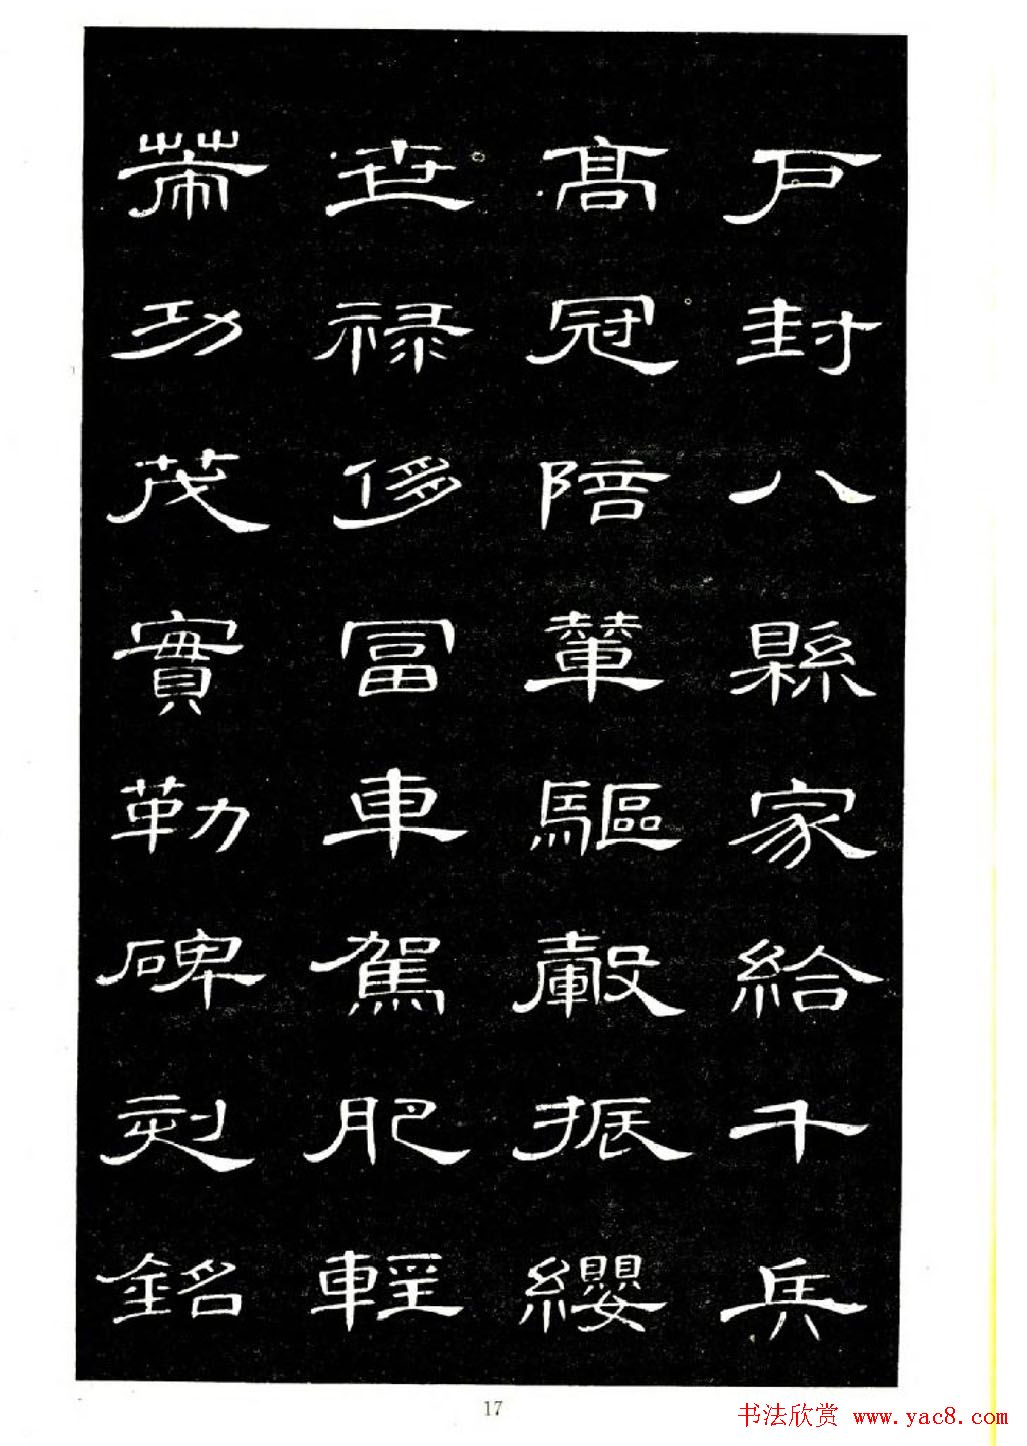 戶封八縣家給千兵
高冠陪輦驅轂振纓
世祿侈富車駕肥輕
策功茂實勒碑刻銘
17
书法欣赏 www.yac8.com